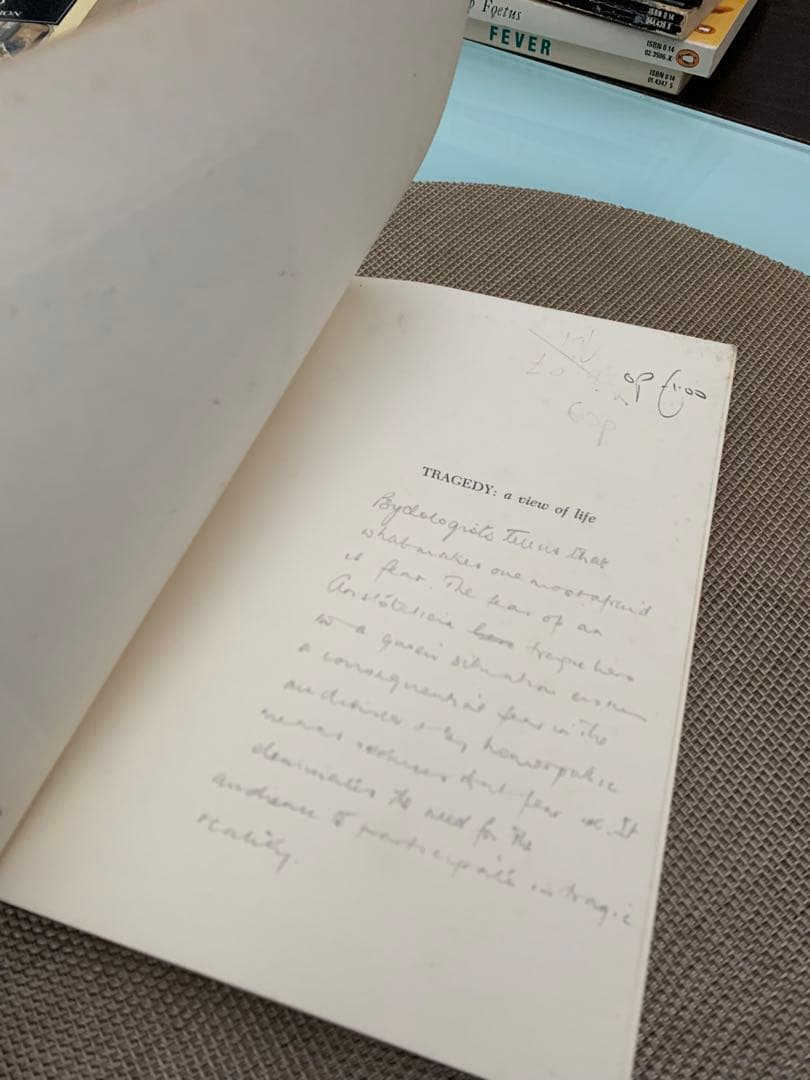 Foetus
FEVER
ISBN 0 14
ISBN 0 14
op £1.00
TRAGEDY: a view of life
Psychologists tell us that
what makes one most afraid
is fear. The fear of an
Aristotelian hero tragic hero
in a given situation
a consequential fear in the
audience & by homeopathic
means reduces that fear It
the need for the
audience to participate in tragic
reality.